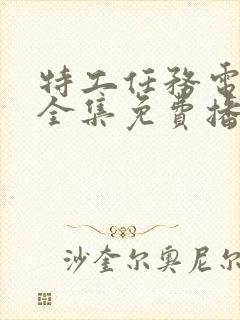 特工任務電
全集免費播
沙奎尔奥尼尔